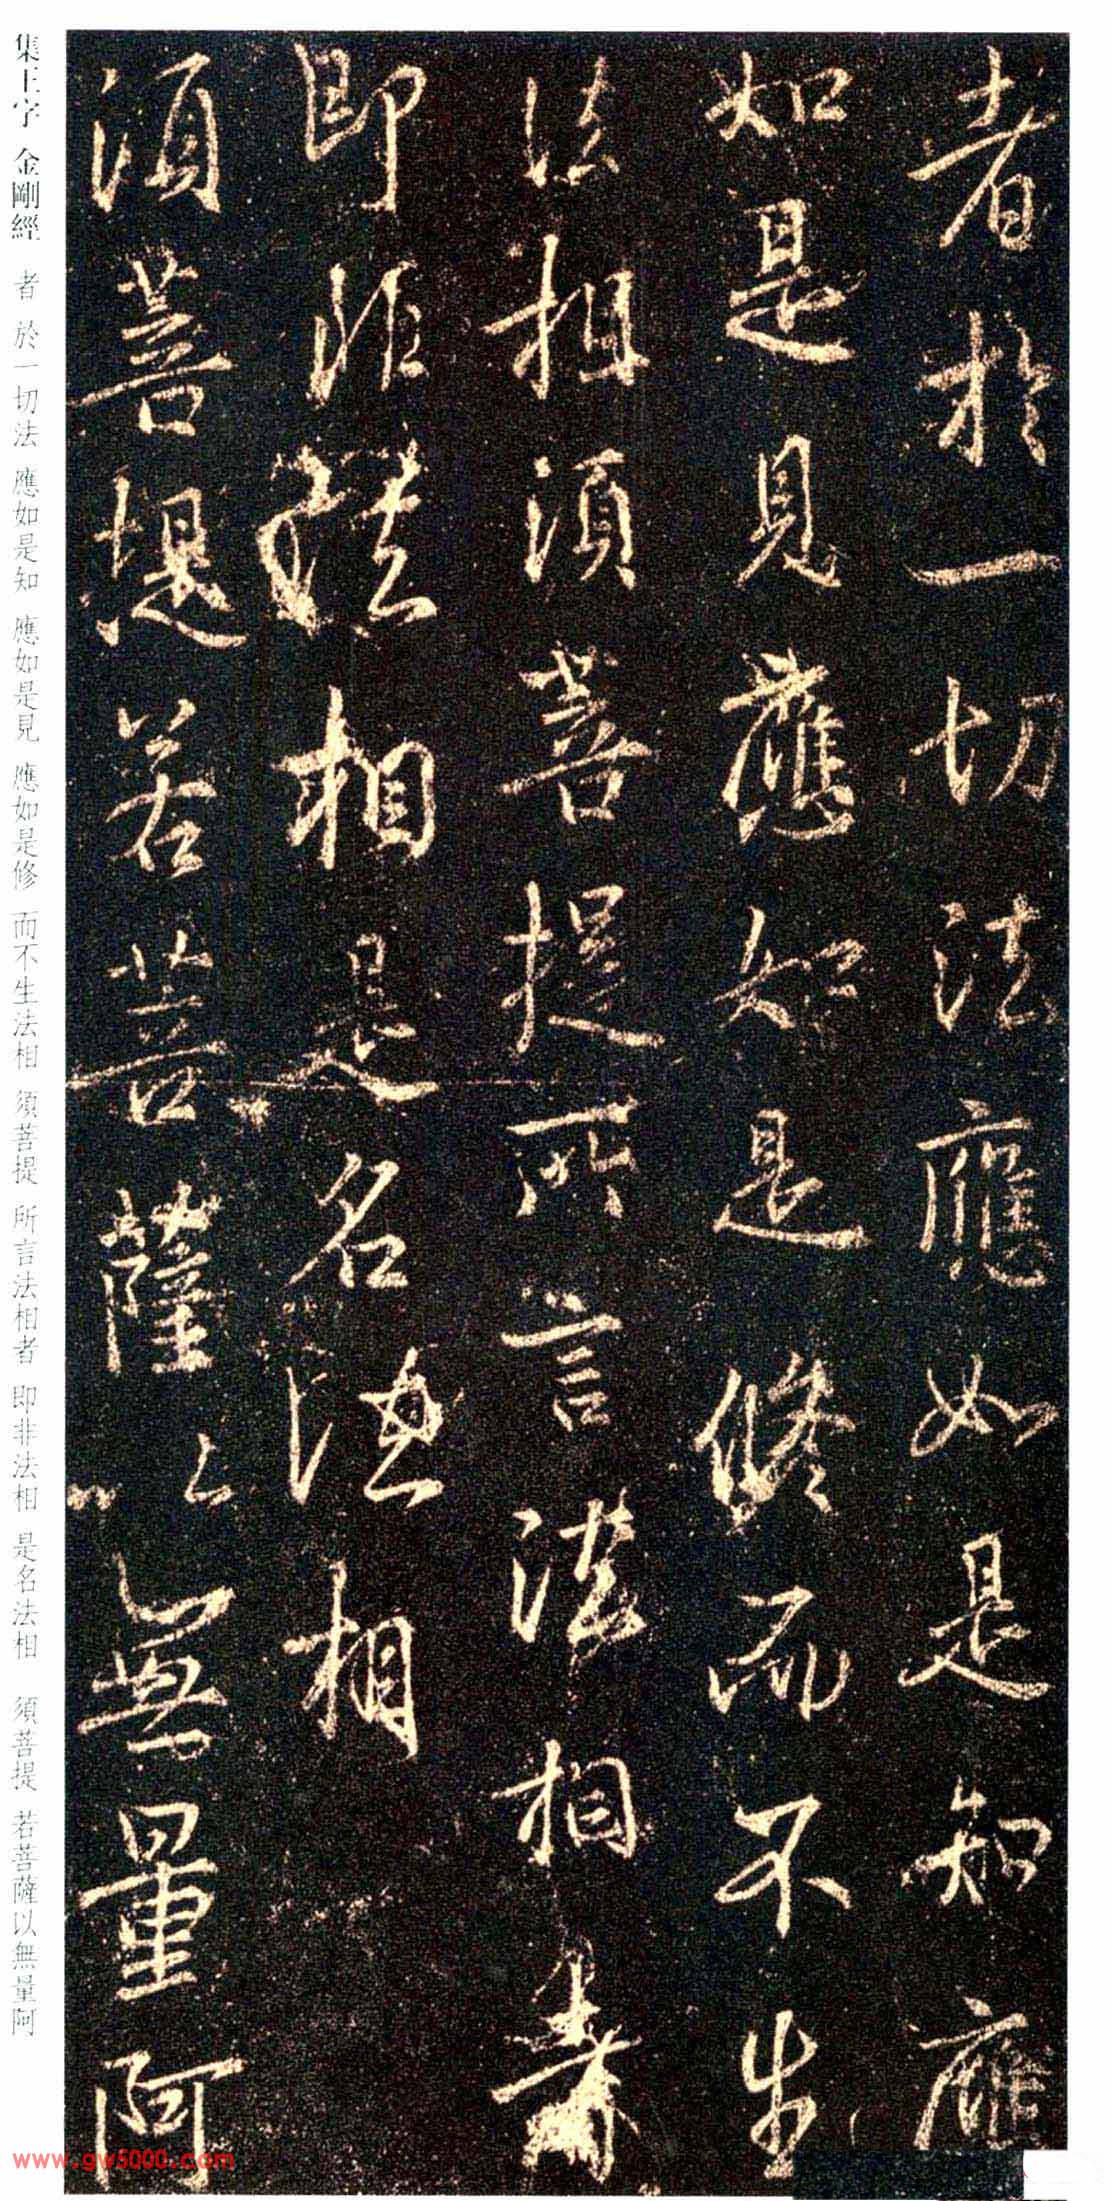 者於一切法應如是知應
如是見應如是修而不生
法相須菩提所言法相者
即非法相是名法相
須菩提若菩薩以無量阿
集王字 金剛經 者 於一切法 應如是知 應如是見 應如是修 而不生法相 須菩提 所言法相者 即非法相 是名法相 須菩提 若菩薩以無量阿
www.gw5000.com